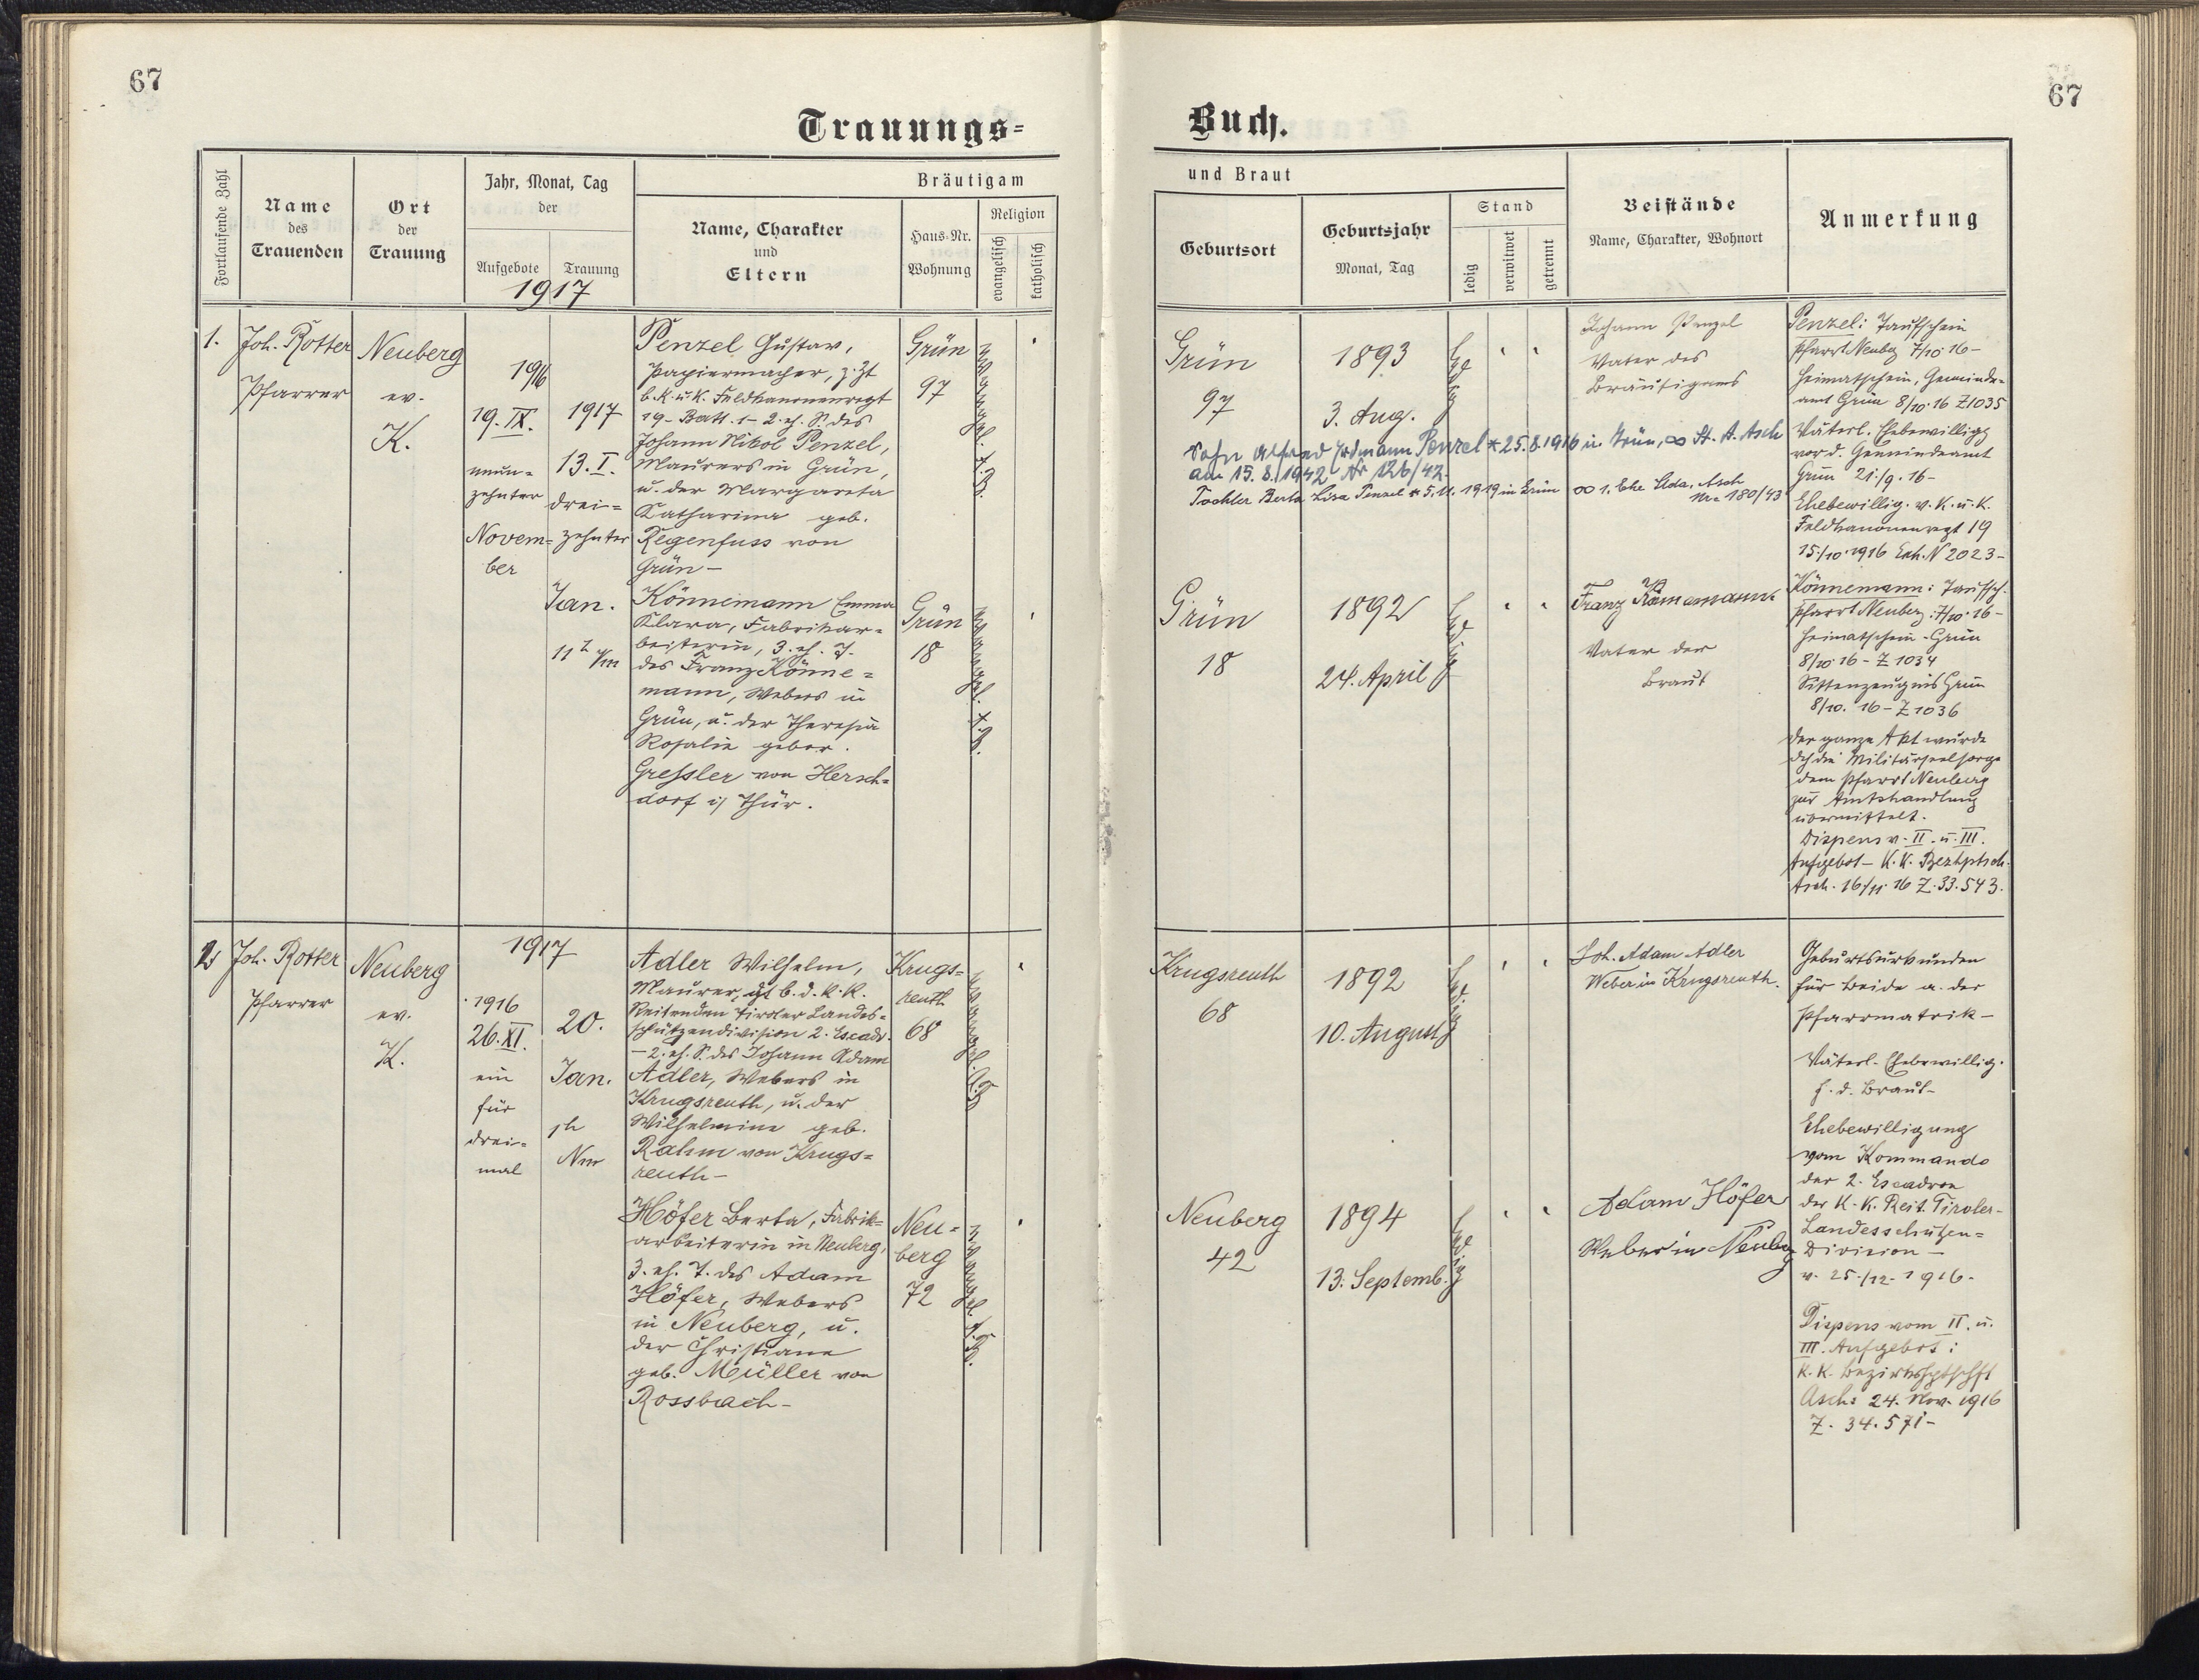 67
Trauungs=
Fortlaufende Zahl
Name
des
Trauenden
Ort
der
Trauung
Jahr, Monat, Tag
der
Aufgebote
Trauung
1917
Bräutigam
Name, Charakter
und
Eltern
Haus-Nr.
Wohnung
Religion
evangelisch
katholisch
1.
Joh. Rotter
Pfarrer
Neuberg
ev.
K.
1916
19. IX.
neun=
zehnter
Novem=
ber
1917
13. I.
drei=
zehnter
Jan.
11 h V/m
Penzel Gustav,
Papiermacher, z. Zt
b. K. u. K. Feldkanonenregt
19 - Batt. 1 - 2. eh. S. des
Johann Nikol Penzel,
Maurers in Grün,
u. der Margareta
Katharina geb.
Regenfuss von
Grün -
Grün
97
evangel. A. B.
Könnemann Emma
Klara, Fabrikar=
beiterin, 3. eh. T.
des Franz Könne=
mann, Webers in
Grün, u. der Theresia
Rosalie gebor.
Gressler von Hersch=
dorf i/ Thür.
Grün
18
evangel. A. B.
2
Joh. Rotter
Pfarrer
Neuberg
ev.
K.
1917
1916
26. XI.
ein
für
drei=
mal
20.
Jan.
1h
Nm
Adler Wilhelm,
Maurer, dzt b. d. k. k.
Reitenden Tiroler Landes=
schützendivision 2. Escadr.
- 2. eh. S. des Johann Adam
Adler, Webers in
Krugsreuth, u. der
Wilhelmine geb.
Rahm von Krugs=
reuth -
Krugs=
reuth
68
evangel. A. B.
Höfer Berta, Fabrik=
arbeiterin in Neuberg,
3. eh. T. des Adam
Höfer, Webers
in Neuberg, u.
der Christiane
geb. Müller von
Rossbach -
Neu=
berg
72
evangel. A. B.
67
Buch.
und Braut
Geburtsort
Geburtsjahr
Monat, Tag
Stand
ledig
verwitwet
getrennt
Beistände
Name, Charakter, Wohnort
Anmerkung
Grün
97
1893
3. Aug.
ledig
Johann Penzel
Vater des
Bräutigams
Penzel: Taufschein
Pfarrt Neubg 7/10 16 -
Heimatschein, Gemeinde=
amt Grün 8/10. 16 Z 1035
Väterl. Ehebewilligg
vor d. Gemeindeamt
Grün 21./9. 16 -
Ehebewillig. v. K. u. K.
Feldkanonenregt 19
15./10. 1916 Exh. N 2023 -
Sohn Alfred Erdmann Penzel * 25.8.1916 in Grün, ∞ St. A. Asch
am 15.8.1942 Nr 126/42.
Tochter Berta Lisa Penzel * 5.11.1919 in Grün ∞ 1. Ehe Sta. Asch
Nr. 180/43
Grün
18
1892
24. April
ledig
Franz Könnemann
Vater der
Braut
Könnemann: Taufsch.
Pfarrt Neuberg: 7/10. 16 -
Heimatschein - Grün
8/10. 16 - Z 1034
Sittenzeugnis Grün
8/10. 16 - Z 1036
Der ganze Akt wurde
dch die Militärseelsorge
dem Pfarrt Neuberg
zur Amtshandlung
übermittelt.
Dispens v. II. u. III.
Aufgebot - K. K. Bezhptsch.
Asch. 16/11. 16 Z. 33.543.
Krugsreuth
68
1892
10. August
ledig
Joh. Adam Adler
Weber in Krugsreuth.
Geburtsurkunden
für beide a. der
Pfarrmatrik -
Väterl. Ehebewillig.
f. d. Braut -
Ehebewilligung
vom Kommando
der 2. Escadron
der K. K. Reit. Tiroler-
Landesschützen=
Division -
v. 25./12. 1916 -
Neuberg
42
1894
13. Septemb.
ledig
Adam Höfer
Weber in Neuberg
Dispens vom II. u.
III. Aufgebot:
K. K. Bezirkshptschft
Asch: 24. Nov. 1916
Z. 34.571 -